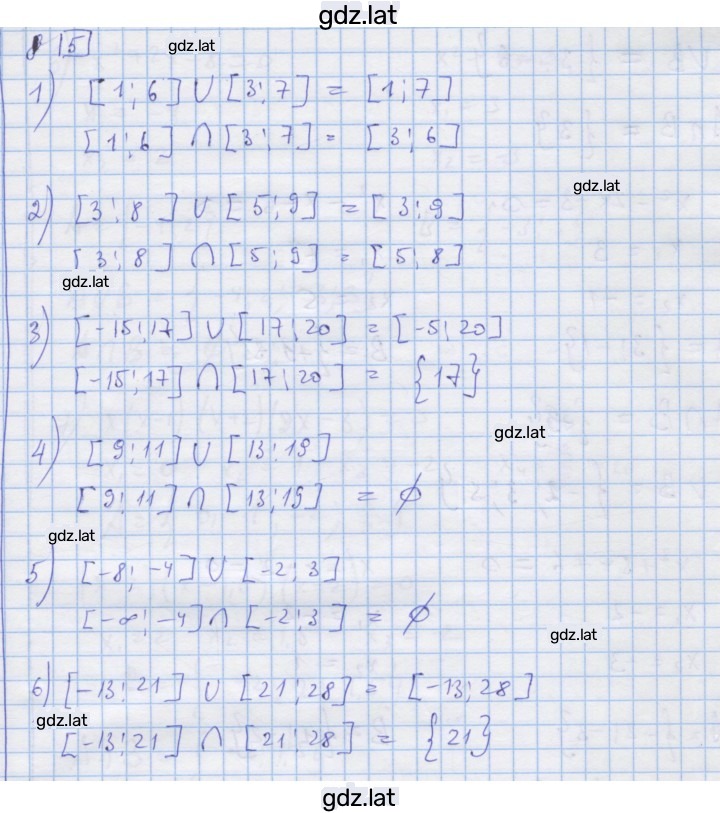 gdz.lat
15
gdz.lat
1) [1; 6] ∪ [3; 7] = [1; 7]
[1; 6] ∩ [3; 7] = [3; 6]
gdz.lat
2) [3; 8] ∪ [5; 9] = [3; 9]
[3; 8] ∩ [5; 9] = [5; 8]
gdz.lat
3) [-15; 17] ∪ [17; 20] = [-5; 20]
[-15; 17] ∩ [17; 20] = {17}
gdz.lat
4) [9; 11] ∪ [13; 19]
[9; 11] ∩ [13; 19] = ∅
gdz.lat
5) [-8; -4] ∪ [-2; 3]
[-∞; -4] ∩ [-2; 3] = ∅
gdz.lat
6) [-13; 21] ∪ [21; 28] = [-13; 28]
gdz.lat
[-13; 21] ∩ [21; 28] = {21}
gdz.lat